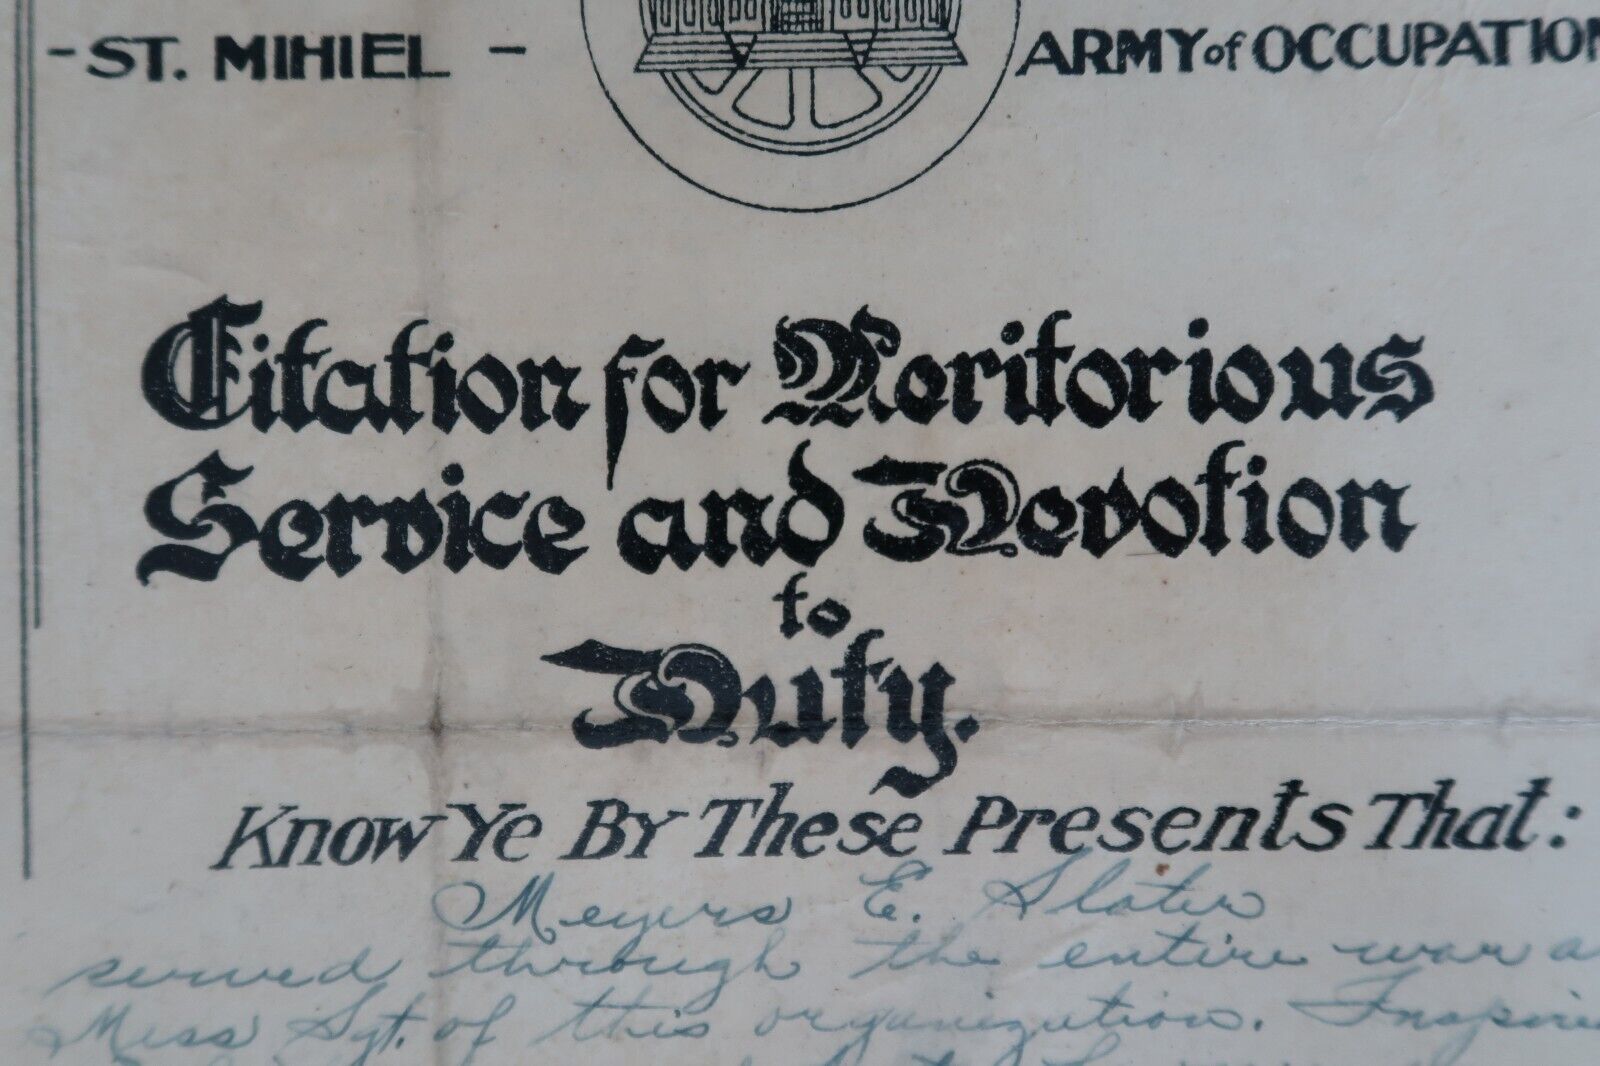 -ST. MIHIEL - ARMY of OCCUPATION
Citation for Meritorious
Service and Devotion
to
Duty.
Know Ye By These Presents That:
Meyers E. Slater
served through the entire war a
Mess Sgt. of this organization. Inspire